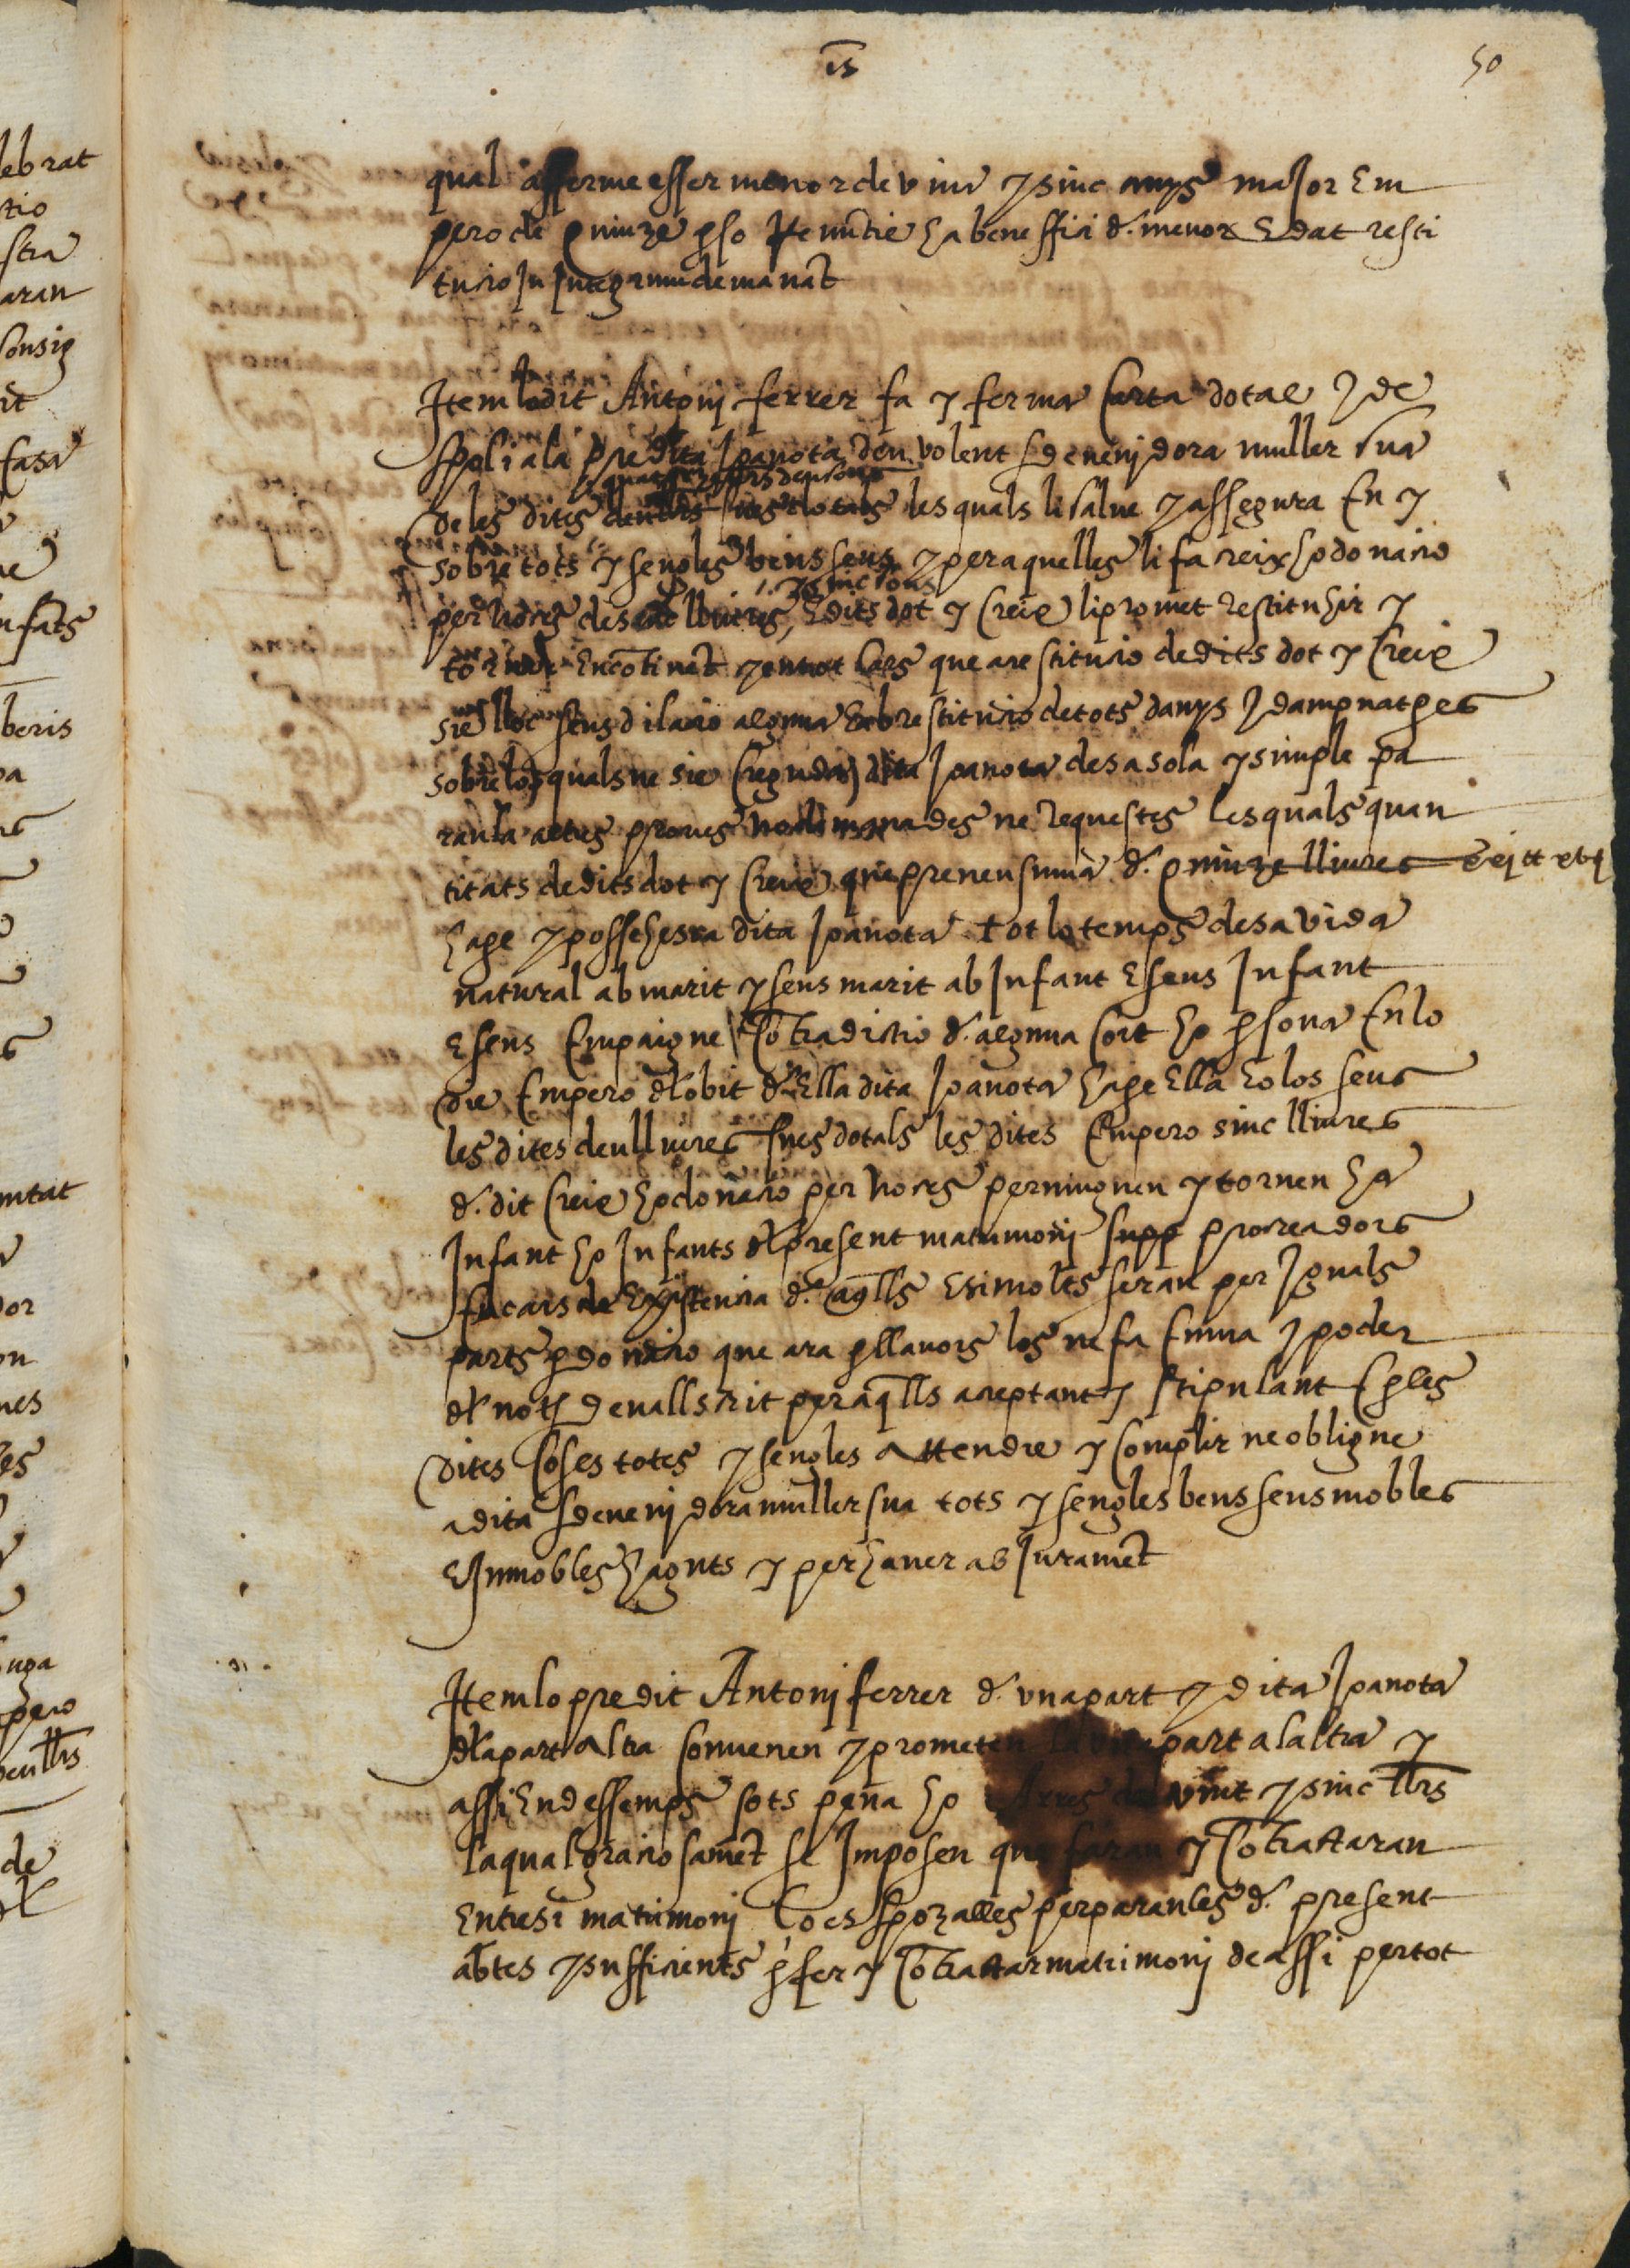 is
50
qual afferme esser menor de vint y sinc anys major Em
pero de quinze pso Renuncie ha beneffici d. menor Edat resti
tucio In Integrum demanat
Item lo dit Antoni ferrer fa y ferma Carta dotal y de
spoli a la predita Joanota den volent sdevenidora muller sua
de les dites deu llrs sues dotals les quals li salue y assegura En y
sobre tots y sengles bens seus y per aquelles li fa creix ho donacio
y sinc sous
per noces de sinc lliures, E dits dot y Creix li promet restituhir y
tornar Encotinet y en tot cars que a restitucio de dits dot y Creix
sie lloc sens dilacio alguna Ab restitucio de tots danys y dampnatges
sobre los quals ne sie Creguda dita Joanota de sa sola y simple pa
raula altres proues no demanades ne requestes les quals quan
titats de dits dot y Creix que prenen suma d. quinze lliures
hage y possehesca dita Joanota tot lo temps de sa vida
natural ab marit y sens marit ab Infant E sens Infant
E sens Empaigne Cotradictio d. alguna sort ho psona En lo
die Empero dl obit d. Ella dita Joanota hage Ella ho los seus
les dites deu lliures sues dotals les dites Empero sinc lliures
d. dit Creix ho donacio per noces perninguen y tornen ha
Infant ho Infants dl present matrimoni procreadors
En cars de Existencia d. aqlls E si molts seran per Iguals
parts p donacio que ara p llauors los ne fa En ma y poder
dl not devall scrit per aqlls aceptant y stipulant E p les
dites Coses totes y sengles Attendre y Complir ne obligue
a dita sdevenidora muller sua tots y sengles bens seus mobles
E Inmobles haguts y per hauer ab Jurament
Item lo predit Antoni ferrer d. vna part y dita Joanota
dla part altra Conuenen y prometen la vna part a la ltra y
assi Endessemps sots pena ho Arres de vint y sinc llrs
la qual graciosamet se Imposen que faran y Cotractaran
Entre si matrimoni Co es spozalles per paraules d. present
abtes y sufficients p fer y Cotractar matrimoni de assi per tot